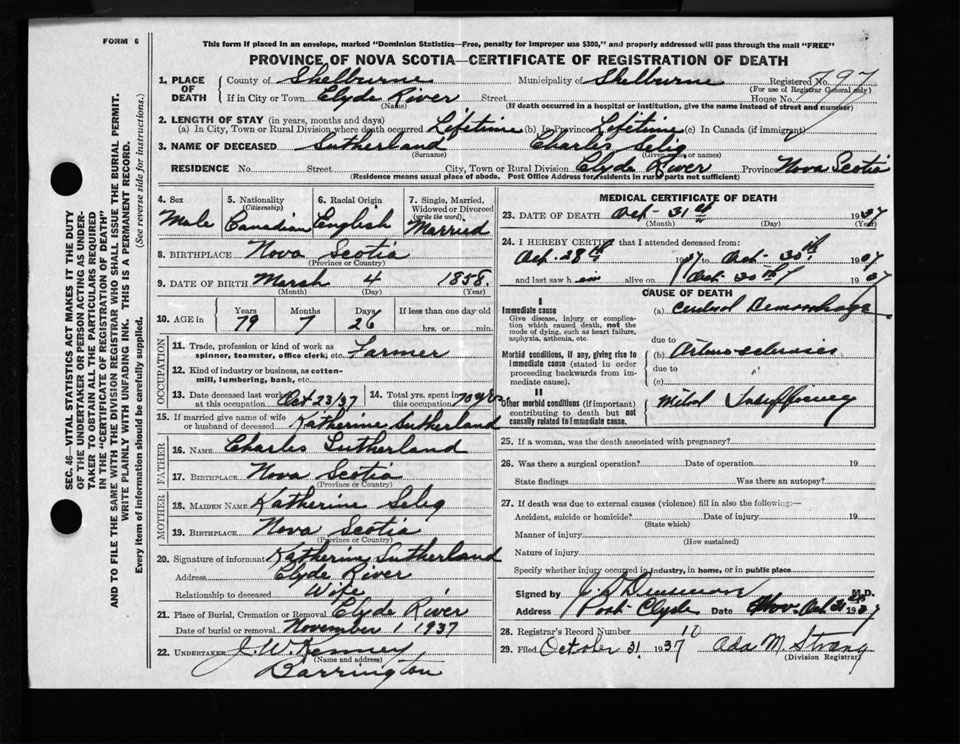 FORM 6
This form if placed in an envelope, marked "Dominion Statistics—Free, penalty for improper use $300," and properly addressed will pass through the mail "FREE"
PROVINCE OF NOVA SCOTIA—CERTIFICATE OF REGISTRATION OF DEATH
1. PLACE OF DEATH County of Shelburne Municipality of Shelburne Registered No. 797
(For use of Registrar General only)
If in City or Town Clyde River Street House No.
(Name) (If death occurred in a hospital or institution, give the name instead of street and number)
2. LENGTH OF STAY (in years, months and days)
(a) In City, Town or Rural Division where death occurred Lifetime (b) In Province Lifetime (c) In Canada (if immigrant)
3. NAME OF DECEASED Sutherland Charles Selig
(Surname) (Given name or names)
RESIDENCE No. Street City, Town or Rural Division Clyde River Province Nova Scotia
(Residence means usual place of abode. Post Office Address for residents in rural parts not sufficient)
4. Sex Male
5. Nationality (Citizenship) Canadian
6. Racial Origin English
7. Single, Married, Widowed or Divorced (write the word) Married
8. BIRTHPLACE Nova Scotia
(Province or Country)
9. DATE OF BIRTH March 4 1858.
(Month) (Day) (Year)
10. AGE in Years 79 Months 7 Days 26 If less than one day old hrs. or min.
OCCUPATION
11. Trade, profession or kind of work as spinner, teamster, office clerk, etc. Farmer
12. Kind of industry or business, as cotton-mill, lumbering, bank, etc.
13. Date deceased last worked at this occupation Oct 23/37
14. Total yrs. spent in this occupation 70 yrs
15. If married give name of wife or husband of deceased Katherine Sutherland
FATHER
16. NAME Charles Sutherland
17. BIRTHPLACE Nova Scotia
(Province or Country)
MOTHER
18. MAIDEN NAME Katherine Selig
19. BIRTHPLACE Nova Scotia
(Province or Country)
20. Signature of informant Katherine Sutherland
Address Clyde River
Relationship to deceased Wife
21. Place of Burial, Cremation or Removal Clyde River
Date of burial or removal November 1 1937
22. UNDERTAKER J. W. Kenney
(Name and address)
Barrington
MEDICAL CERTIFICATE OF DEATH
23. DATE OF DEATH Oct- 31st 1937
(Month) (Day) (Year)
24. I HEREBY CERTIFY that I attended deceased from:
Oct. 28th 1937 to Oct- 30th 1937
and last saw h im alive on Oct. 30th 1937
CAUSE OF DEATH
I
Immediate cause
Give disease, injury or complication which caused death, not the mode of dying, such as heart failure, asphyxia, asthenia, etc.
(a) Cerebral Hemorrhage
due to
Morbid conditions, if any, giving rise to immediate cause (stated in order proceeding backwards from immediate cause).
(b) Arterio-sclerosis
due to
(c)
II
Other morbid conditions (if important) contributing to death but not causally related to immediate cause.
Mitral Insufficiency
25. If a woman, was the death associated with pregnancy?
26. Was there a surgical operation? Date of operation 19
State findings Was there an autopsy?
27. If death was due to external causes (violence) fill in also the following:—
Accident, suicide or homicide? Date of injury 19
(State which)
Manner of injury
(How sustained)
Nature of injury
Specify whether injury occurred in industry, in home, or in public place
Signed by M.D.
Address Port Clyde Date Oct 31 1937
28. Registrar's Record Number 10
29. Filed October 31 1937 Ada M. Strang
(Division Registrar)
SEC. 46—VITAL STATISTICS ACT MAKES IT THE DUTY
OF THE UNDERTAKER OR PERSON ACTING AS UNDER-
TAKER TO OBTAIN ALL THE PARTICULARS REQUIRED
IN THE "CERTIFICATE OF REGISTRATION OF DEATH"
AND TO FILE THE SAME WITH THE DIVISION REGISTRAR WHO SHALL ISSUE THE BURIAL PERMIT.
WRITE PLAINLY WITH UNFADING INK. THIS IS A PERMANENT RECORD.
Every item of information should be carefully supplied. (See reverse side for instructions.)